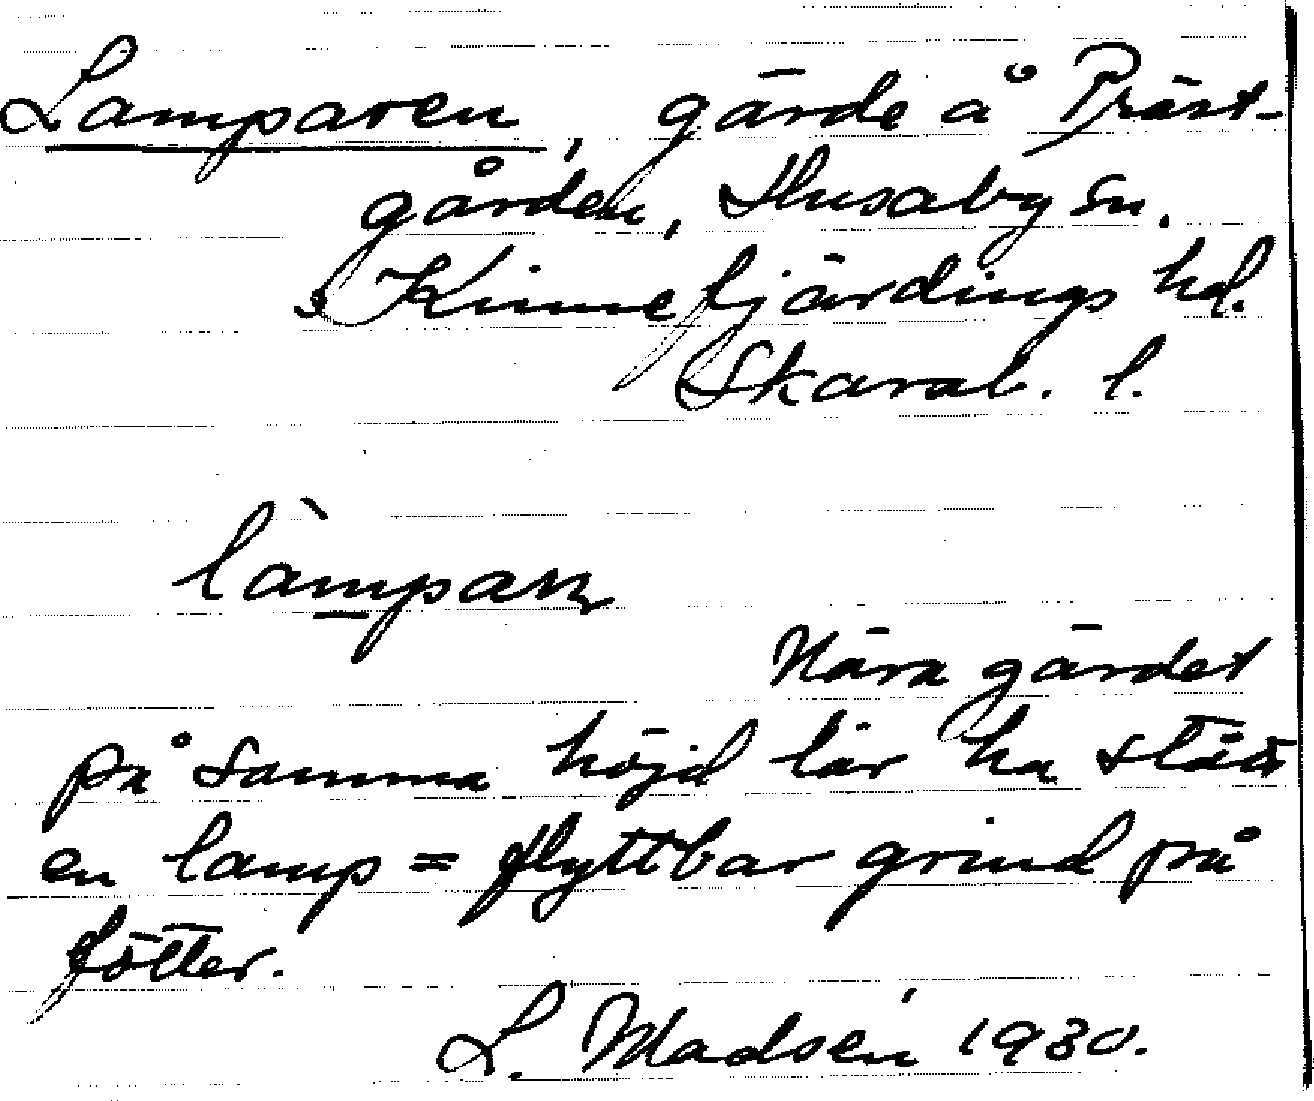 Lamparen, gärde å Präst-
gården, Husaby sn.
Kinnefjärdings hd.
Skarab. l.
Nära gärdet
på samma höjd lär ha stått
en lamp = flyttbar grind på
fötter.
L. Madsén 1930.